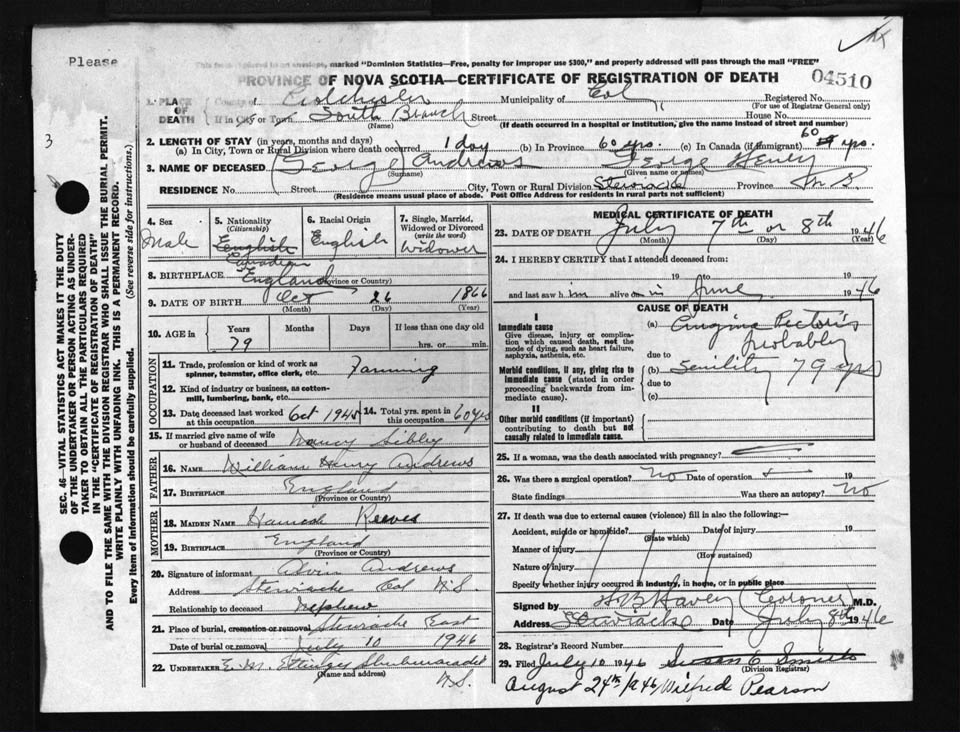 Please
This form folded to an envelope, marked "Dominion Statistics—Free, penalty for improper use $300," and properly addressed will pass through the mail "FREE"
PROVINCE OF NOVA SCOTIA—CERTIFICATE OF REGISTRATION OF DEATH
04510
3
SEC. 46—VITAL STATISTICS ACT MAKES IT THE DUTY
OF THE UNDERTAKER OR PERSON ACTING AS UNDER-
TAKER TO OBTAIN ALL THE PARTICULARS REQUIRED
IN THE "CERTIFICATE OF REGISTRATION OF DEATH"
AND TO FILE THE SAME WITH THE DIVISION REGISTRAR WHO SHALL ISSUE THE BURIAL PERMIT.
WRITE PLAINLY WITH UNFADING INK. THIS IS A PERMANENT RECORD.
Every item of information should be carefully supplied. (See reverse side for instructions.)
1. PLACE OF DEATH County of Colchester Municipality of Col Registered No.
(For use of Registrar General only)
If in City or Town South Branch Street House No.
(Name) (If death occurred in a hospital or institution, give the name instead of street and number)
2. LENGTH OF STAY (in years, months and days)
(a) In City, Town or Rural Division where death occurred 1 day (b) In Province 60 yrs. (c) In Canada (if immigrant) 60 yrs.
3. NAME OF DECEASED (George) Andrews George Henry
(Surname) (Given name or names)
RESIDENCE No. Street City, Town or Rural Division Stewiacke Province N.S.
(Residence means usual place of abode. Post Office Address for residents in rural parts not sufficient)
4. Sex Male
5. Nationality (Citizenship) English Canadian
6. Racial Origin English
7. Single, Married, Widowed or Divorced (write the word) Widower
8. BIRTHPLACE England
(Province or Country)
9. DATE OF BIRTH Oct 26 1866
(Month) (Day) (Year)
10. AGE in Years Months Days If less than one day old
79 hrs. or min.
OCCUPATION
11. Trade, profession or kind of work as spinner, teamster, office clerk, etc. Farming
12. Kind of industry or business, as cotton-mill, lumbering, bank, etc.
13. Date deceased last worked at this occupation Oct 1945 14. Total yrs. spent in this occupation 60 yrs
15. If married give name of wife or husband of deceased Nancy Sibley
FATHER
16. NAME William Henry Andrews
17. BIRTHPLACE England
(Province or Country)
MOTHER
18. MAIDEN NAME Hannah Reeves
19. BIRTHPLACE England
(Province or Country)
20. Signature of informant Alvin Andrews
Address Stewiacke Col N.S.
Relationship to deceased Nephew
21. Place of burial, cremation or removal Stewiacke East
Date of burial or removal July 10 1946
22. UNDERTAKER E. M. Ettinger Shubenacadie
(Name and address) N.S.
MEDICAL CERTIFICATE OF DEATH
23. DATE OF DEATH July 7th or 8th 1946
(Month) (Day) (Year)
24. I HEREBY CERTIFY that I attended deceased from:
19 to 19
and last saw him alive on in June 1946
CAUSE OF DEATH
I
Immediate cause
Give disease, injury or complication which caused death, not the mode of dying, such as heart failure, asphyxia, asthenia, etc.
(a) Angina Pectoris
Probably
due to
Morbid conditions, if any, giving rise to immediate cause (stated in order proceeding backwards from immediate cause).
(b) Senility 79 yrs
due to
(c)
II
Other morbid conditions (if important) contributing to death but not causally related to immediate cause.
25. If a woman, was the death associated with pregnancy?
26. Was there a surgical operation? No Date of operation 19
State findings Was there an autopsy? No
27. If death was due to external causes (violence) fill in also the following:—
Accident, suicide or homicide? Date of injury 19
(State which)
Manner of injury
(How sustained)
Nature of injury
Specify whether injury occurred in industry, in home, or in public place
Signed by (Coroner) M.D.
Address Stewiacke Date July 8th 1946
28. Registrar's Record Number
29. Filed July 10 1946 Susan C Smith
(Division Registrar)
August 24th 1946 Wilfred Pearson